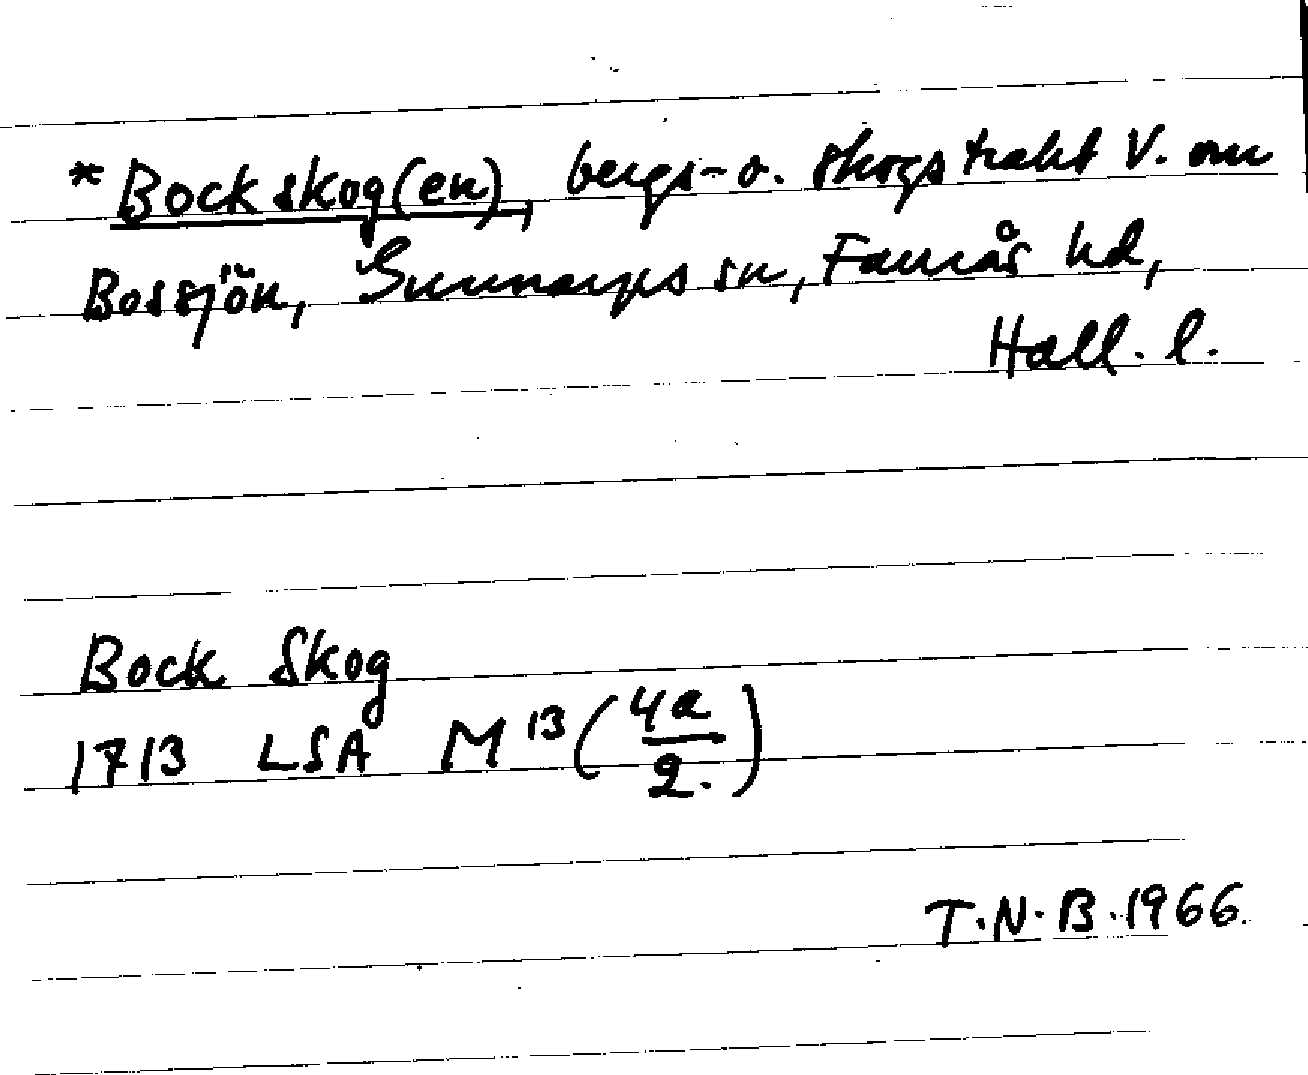 *Bockskog(en), bergs- o. skogstrakt V. om
Bossjön, Gunnarps sn, Faurås hd,
Hall. l.
Bock Skog
1713 LSA M 13 (4a/2.)
T.N.B. 1966.